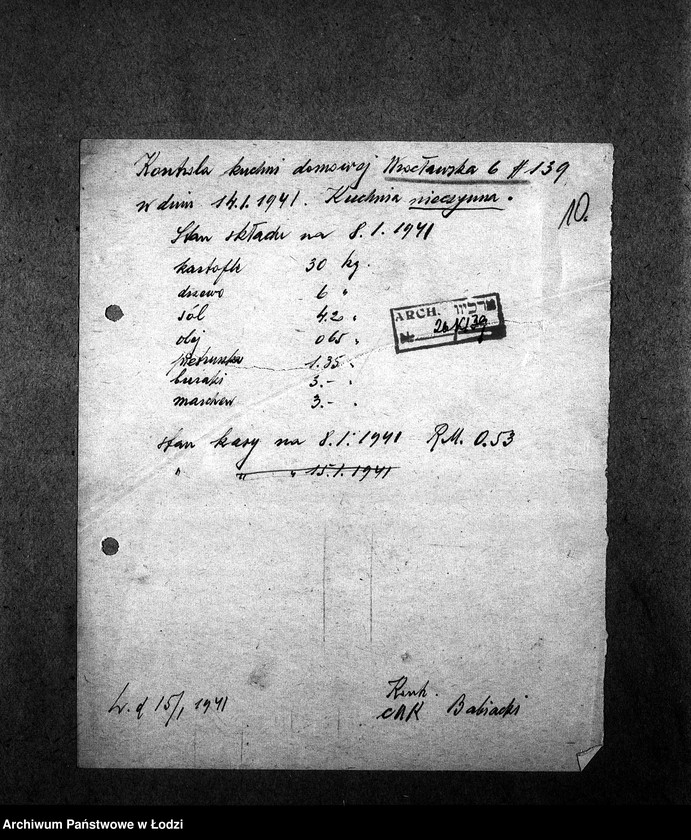 Kontrola kuchni domowej Wrocławska 6 # 139
w dniu 14.1.1941. Kuchnia nieczynna.
10.
Stan składu na 8.1.1941
kartofle 30 kg.
drzewo 6 "
sól 4.20 "
olej 065 "
ARCH. ארכיון
26/139
pietruszka 1.35 "
buraki 3.- "
marchew 3.- "
stan kasy na 8.1.1941 R.M. 0.53
" " " 15.1.1941
L. d 15/1 1941
Kont.
Babiacki
Archiwum Państwowe w Łodzi